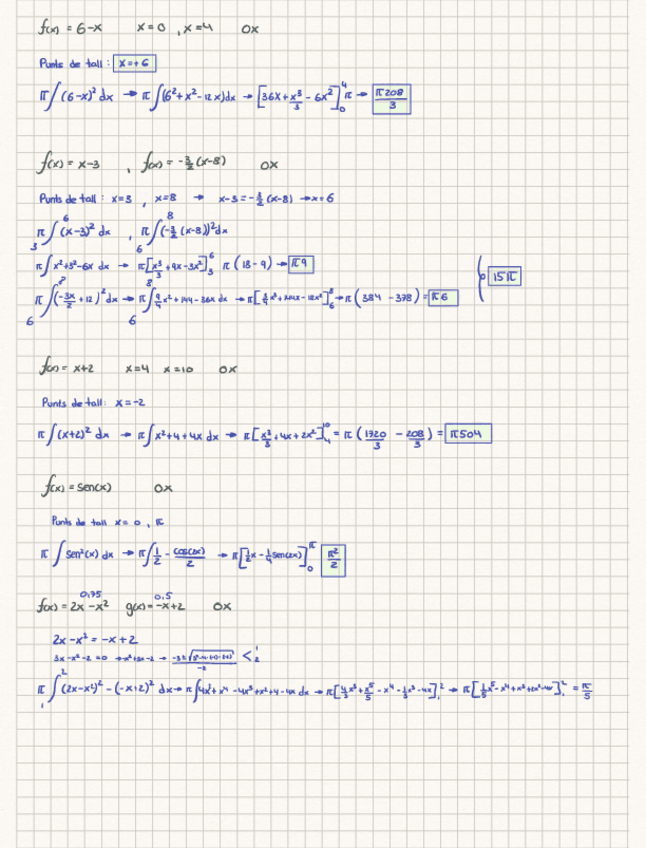 f(x) = 6-x x=0 , x=4 OX
Punts de tall: x=+6
π∫(6-x)² dx → π∫(6²+x²-12x)dx → [36x+x³/3-6x²]₀⁴ π → π208/3
f(x) = x-3 , f(x) = -3/2(x-8) OX
Punts de tall: x=3 , x=8 → x-3=-3/2(x-8) → x=6
π∫₃⁶(x-3)² dx , π∫₆⁸(-3/2(x-8))² dx
π∫x²+3²-6x dx → π[x³/3+9x-3x²]₃⁶ π(18-9) → π9
π∫₆⁸(-3x/2+12)² dx → π∫₆⁸ 9/4x²+144-36x dx → π[3/4x³+144x-18x²]₆⁸ → π(384-378) = π6
15π
f(x) = x+2 x=4 x=10 OX
Punts de tall: x=-2
π∫(x+2)² dx → π∫x²+4+4x dx → π[x³/3+4x+2x²]₄¹⁰ = π(1720/3-208/3) = π504
f(x) = sen(x) OX
Punts de tall x=0 , π
π∫sen²(x) dx → π∫1/2-cos(2x)/2 → π[1/2x-1/4sen(2x)]₀^π π²/2
0,75 0,5
f(x) = 2x-x² g(x)=-x+2 OX
2x-x² = -x+2
3x-x²-2=0 → -x²+3x-2 → <1 2
π∫₁²(2x-x²)²-(-x+2)² dx → π∫4x²+x⁴-4x³+x²+4-4x dx → π[4/3x³+x⁵/5-x⁴-1/3x³-4x]₁² → = π/5